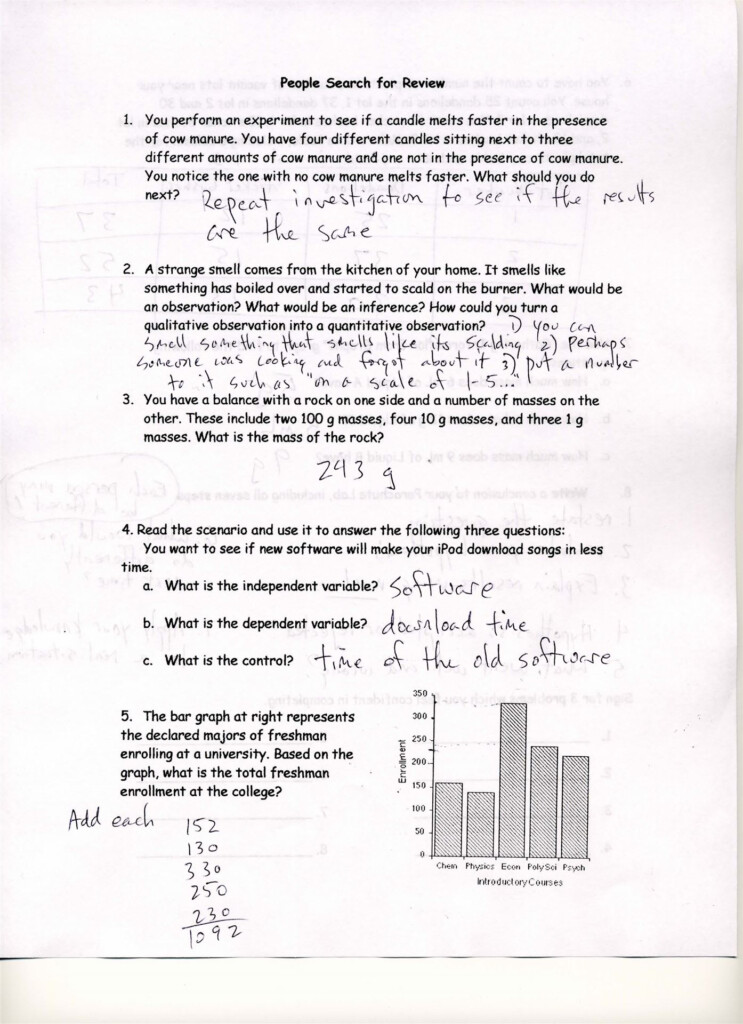 People Search for Review
1. You perform an experiment to see if a candle melts faster in the presence
of cow manure. You have four different candles sitting next to three
different amounts of cow manure and one not in the presence of cow manure.
You notice the one with no cow manure melts faster. What should you do
next? Repeat investigation to see if the results
are the same
2. A strange smell comes from the kitchen of your home. It smells like
something has boiled over and started to scald on the burner. What would be
an observation? What would be an inference? How could you turn a
qualitative observation into a quantitative observation? 1) you can
smell something that smells like its scalding 2) perhaps
someone was cooking and forgot about it 3) put a number
to it such as "on a scale of 1-5..."
3. You have a balance with a rock on one side and a number of masses on the
other. These include two 100 g masses, four 10 g masses, and three 1 g
masses. What is the mass of the rock?
243 g
4. Read the scenario and use it to answer the following three questions:
You want to see if new software will make your iPod download songs in less
time.
a. What is the independent variable? Software
b. What is the dependent variable? download time
c. What is the control? time of the old software
5. The bar graph at right represents
the declared majors of freshman
enrolling at a university. Based on the
graph, what is the total freshman
enrollment at the college?
Add each 152
130
330
250
230
1092
350
300
250
200
150
100
50
0
Enrollment
Chem Physics Econ PolySci Psych
Introductory Courses